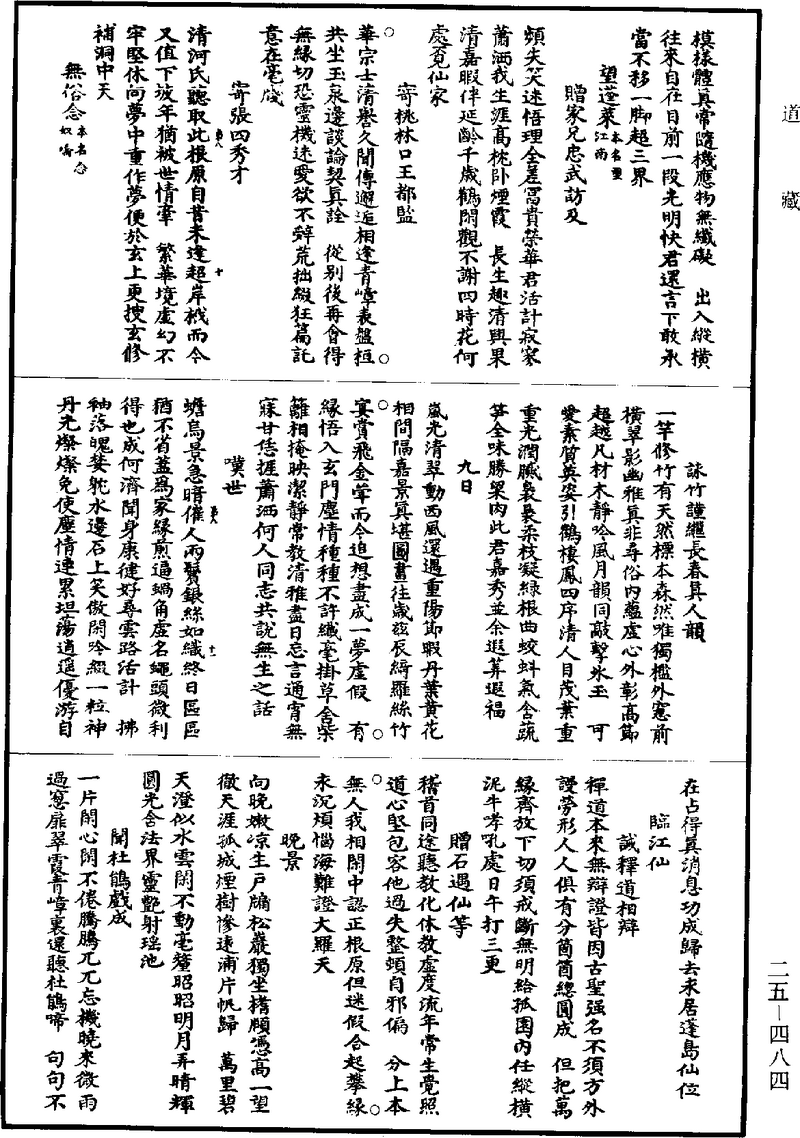 道藏
模樣體真常隨機應物無纖礙　出入縱橫
往來自在目前一段光明快君還言下敢承
當不移一脚超三界
望蓬萊本名重江南
贈家兄忠武訪及
頻失笑迷悟理全差冨貴榮華君活計寂寥
蕭洒我生涯高枕卧煙霞　長生趣清興果
清嘉暇伴延齡千歲鶴閑觀不謝四時花何
處覓仙家
寄桃林口王都監
華宗士清譽久聞傳邂逅相逢青嶂表盤桓
共坐玉泉邊談論契真詮　從别後再會得
無緣切恐靈機迷愛欲不辭荒拙綴狂篇託
意在毫牋
寄張四秀才
清河氏聽取此根原自昔未逢超岸栰而今
又值下坡年猶被世情牽　繁華境虛幻不
牢堅休向夢中重作夢便於玄上更搜玄修
補洞中天
無俗念本名念奴嬌
詠竹謹繼長春真人韻
一竿修竹有天然標本森然唯獨檻外窓前
橫翠影幽雅真非尋俗內蘊虛心外彰高節
超越凡材木靜吟風月韻同敲擊氷玉　可
愛素質英姿引鶴棲鳳四序清人目茂葉重
重光潤膩裊裊柔枝凝緑根曲蛟蚪氣含蔬
笋全味勝粱肉此君嘉秀並余遐筭遐福
九日
嵐光清翠動西風還遇重陽節暇丹葉黄花
相間隔嘉景真堪圖畫往歲兹辰綺羅絲竹
宴賞飛金斝而今追想盡成一夢虛假　有
緣悟入玄門塵情種種不許纖毫掛草舍柴
籬相掩映潔靜常教清雅盡日忘言通宵無
寐甘恁捱蕭洒何人同志共説無生之話
嘆世
蟾烏景急暗催人兩鬢銀絲如織終日區區
猶不省蓋爲家緣煎逼蝸角虛名蠅頭微利
得也成何濟聞身康健好尋雲路活計　拂
袖落魄婪躭水邊石上笑傲閑吟綴一粒神
丹光燦燦免使塵情連累坦蕩逍遥優游自
在占得真消息功成歸去來居蓬島仙位
臨江仙
誡釋道相辯
禪道本來無辯證皆因古聖强名不須方外
謾勞形人人俱有分箇箇總圓成　但把萬
緣齊放下切須戒斷無明給孤園内任縱横
泥牛哮吼處日午打三更
贈石遇仙等
稽首同途聽教化休教虛度流年常生覺照
道心堅包容他過失整頓自邪偏　分上本
無人我相閑中認正根原但迷假合起攀緣
未沉煩惱海難證大羅天
晩景
向晩嫩凉生戶牖松巖獨坐搘頤憑高一望
徹天涯孤城煙樹慘遠浦片帆歸　萬里碧
天澄似水雲閑不動毫釐昭昭明月弄晴輝
圓光含法界靈艷射瑶池
聞杜鵑戲成
一片閑心閑不倦騰騰兀兀忘機曉來微雨
過窓扉翠霞青嶂裏還聽杜鵑啼　句句不
二五—四八四